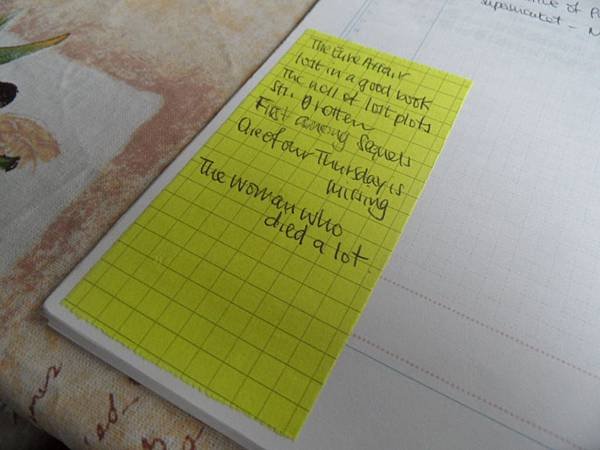 The Eyre Affair
lost in a good book
The well of lost plots
Sth. rotten
First among Sequels
One of our Thursday is
missing
The woman who
died a lot
of
supermarket - N